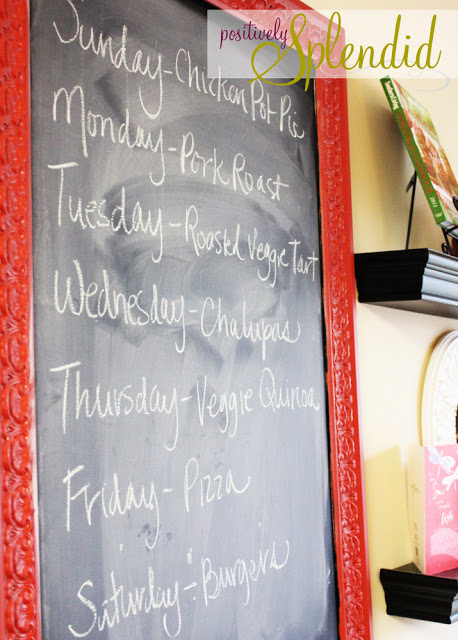 positively Splendid
Sunday-Chicken Pot Pie
Monday-Pork Roast
Tuesday-Roasted Veggie Tart
Wednesday-Chalupas
Thursday-Veggie Quinoa
Friday-Pizza
Saturday-Burgers